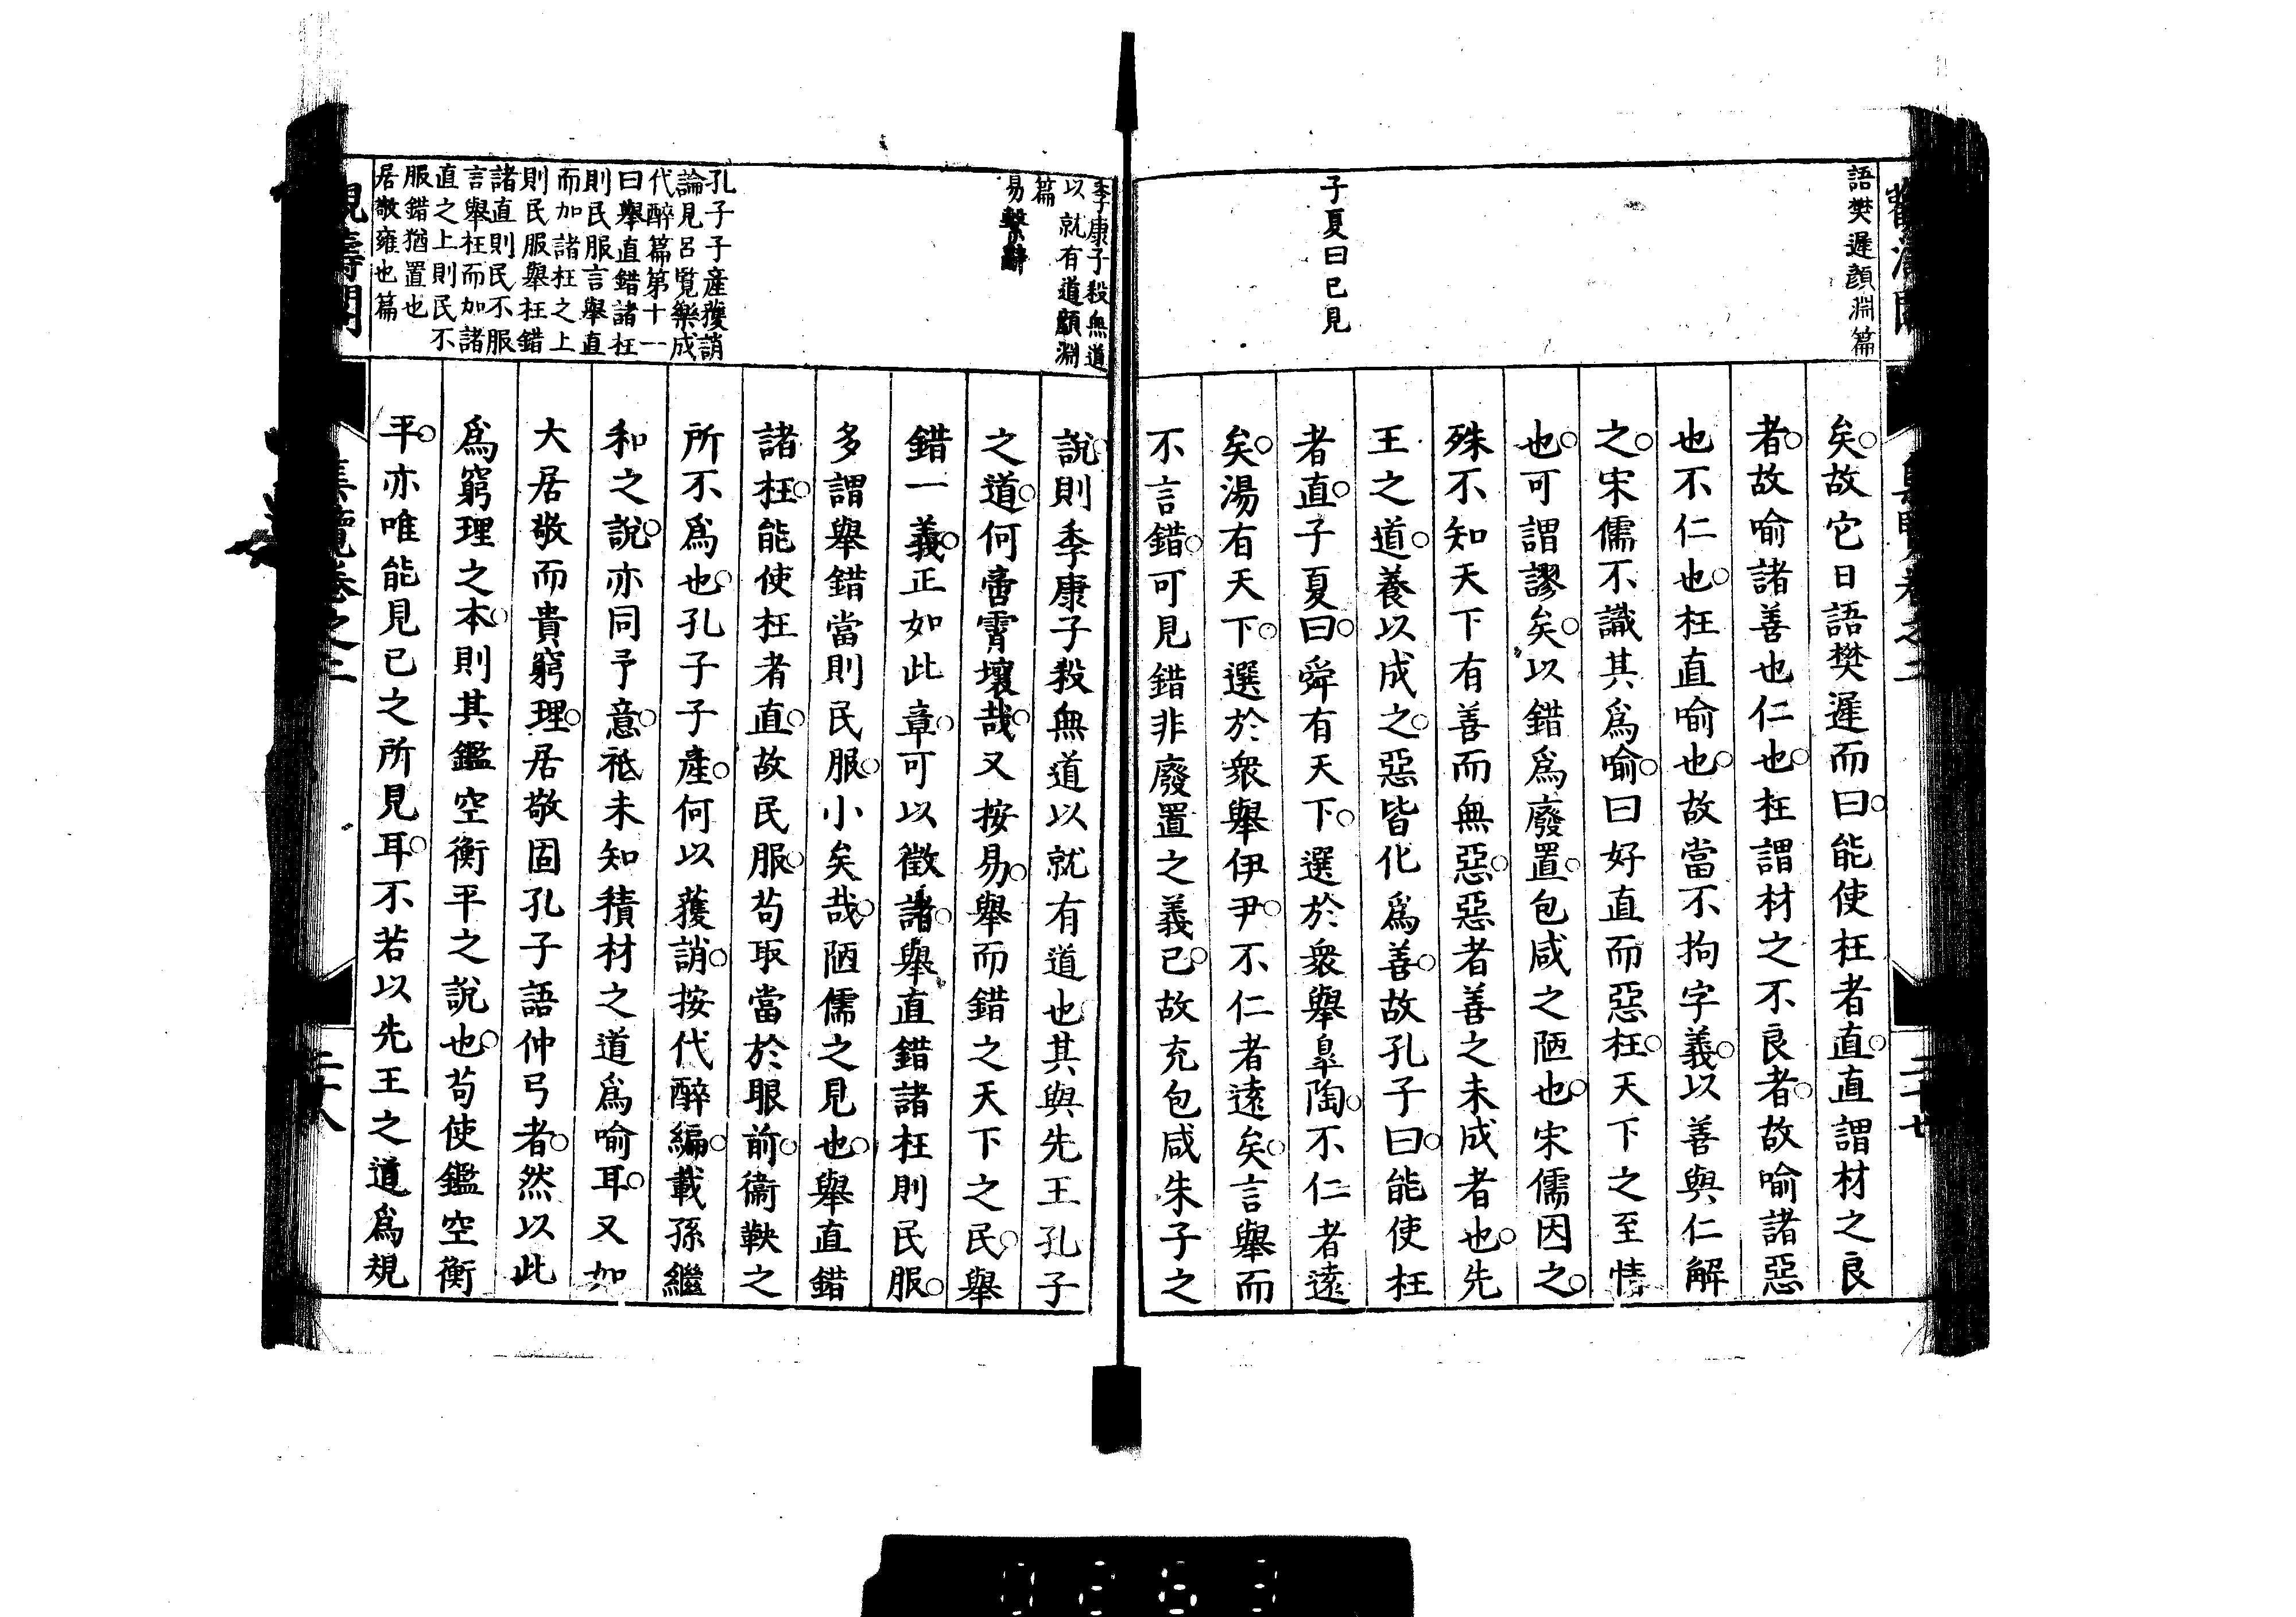 語樊遲顏淵篇
子夏曰已見
矣。故它日語樊遲而曰。能使枉者直。直謂材之良
者。故喻諸善也仁也。枉謂材之不良者。故喻諸惡
也不仁也。枉直喻也。故當不拘字義。以善與仁解
之。宋儒不識其爲喻。曰好直而惡枉。天下之至情
也。可謂謬矣。以錯爲廢置。包咸之陋也。宋儒因之。
殊不知天下有善而無惡。惡者善之未成者也。先
王之道。養以成之。惡皆化爲善。故孔子曰。能使枉
者直。子夏曰。舜有天下。選於衆舉皐陶。不仁者遠
矣。湯有天下。選於衆舉伊尹。不仁者遠矣。言舉而
不言錯。可見錯非廢置之義已。故充包咸朱子之
季康子殺無道
以就有道顏淵
篇
易繫辭
孔子子產獲誚
論見呂覽樂成
代醉篇第十一
曰舉直錯諸枉
則民服言舉直
而加諸枉之上
則民服舉枉錯
諸直則民不服
言舉枉而加諸
直之上則民不
服錯猶置也
居敬雍也篇
說。則季康子殺無道以就有道也。其與先王孔子
之道。何啻霄壤哉。又按易。舉而錯之天下之民。舉
錯一義。正如此章。可以徵諸。舉直錯諸枉則民服。
多謂舉錯當則民服。小矣哉。陋儒之見也。舉直錯
諸枉。能使枉者直。故民服。苟取當於眼前。衞鞅之
所不爲也。孔子子產。何以獲誚。按代醉編。載孫繼
和之說。亦同予意。祗未知積材之道爲喻耳。又如
大居敬而貴窮理。居敬固孔子語仲弓者。然以此
爲窮理之本。則其鑑空衡平之說也。苟使鑑空衡
平。亦唯能見己之所見耳。不若以先王之道爲規
集覽卷之二
二十八